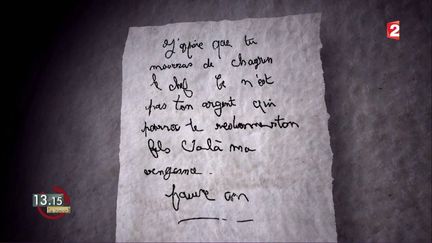 J'espère que tu
mourras de chagrin
le chef Ce n'est
pas ton argent qui
pourra te redonner ton
fils Voilà ma
vengeance.
pauvre con
2
13.15